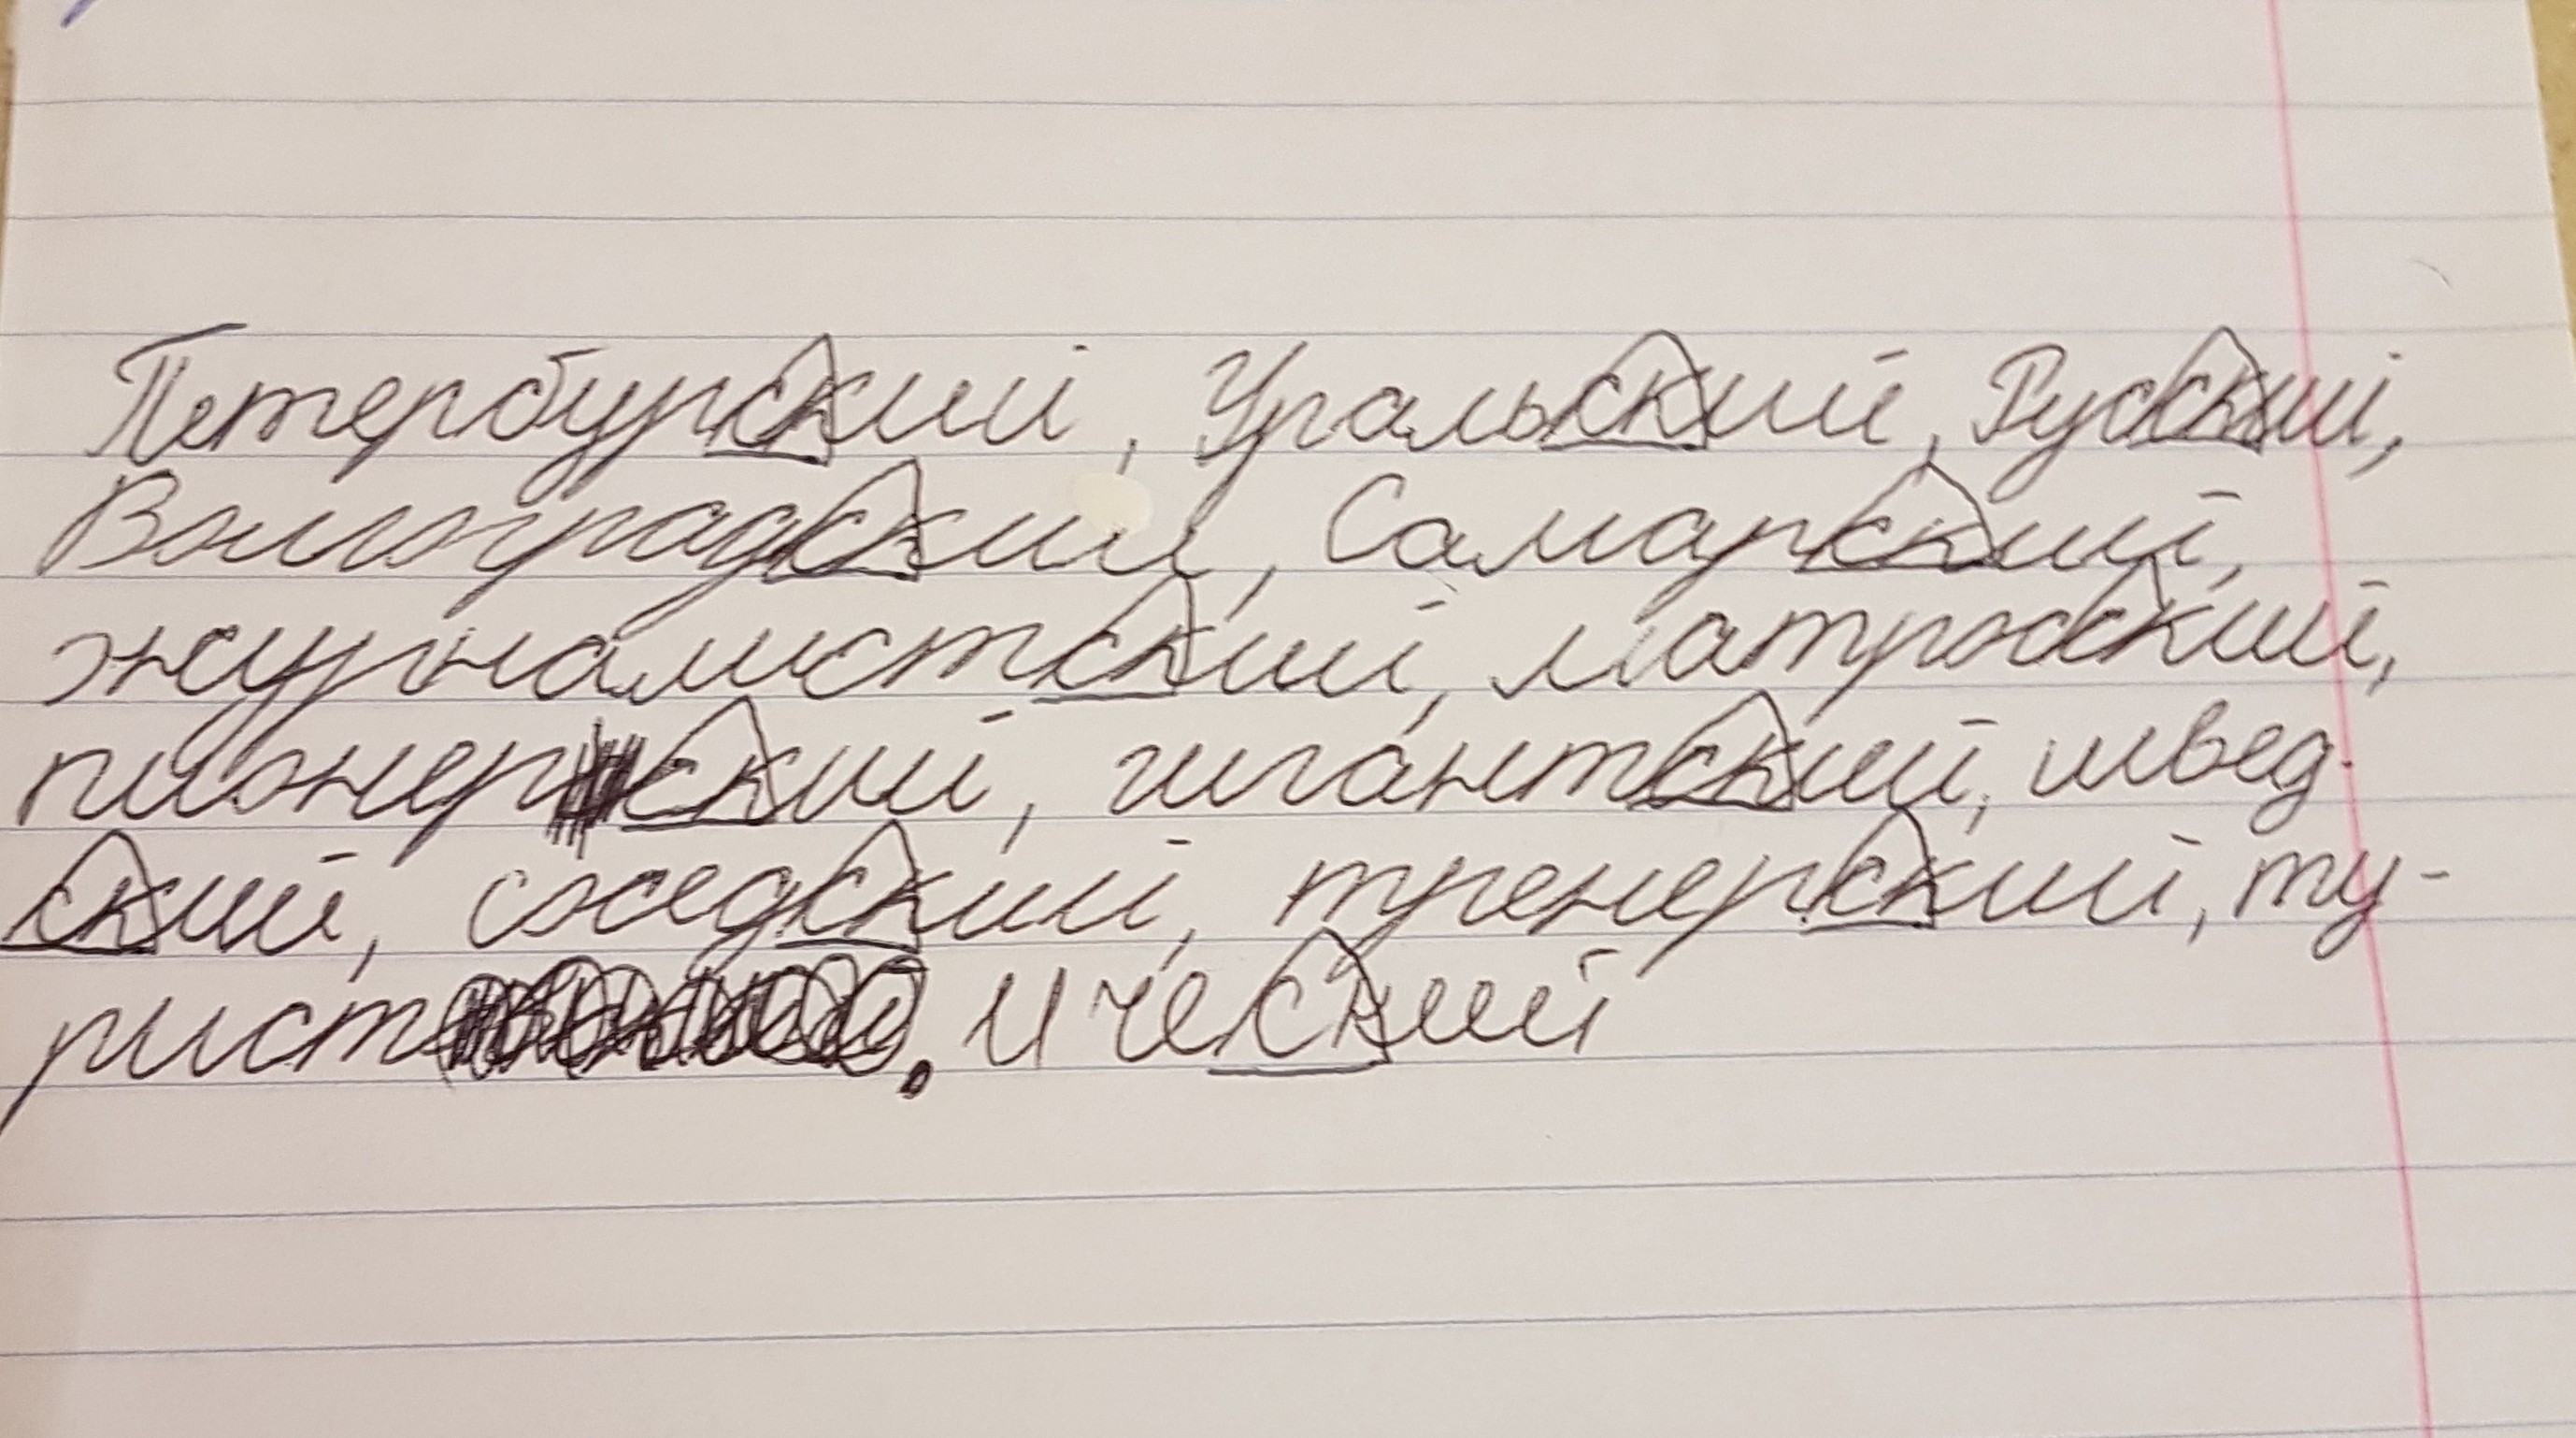 Петербурский, Уральский, Русский,
Волгоградский, Самарский,
журналистский, матросский,
пионерский, гигантский, швед-
ский, соседский, тренерский, ту-
рист. ический